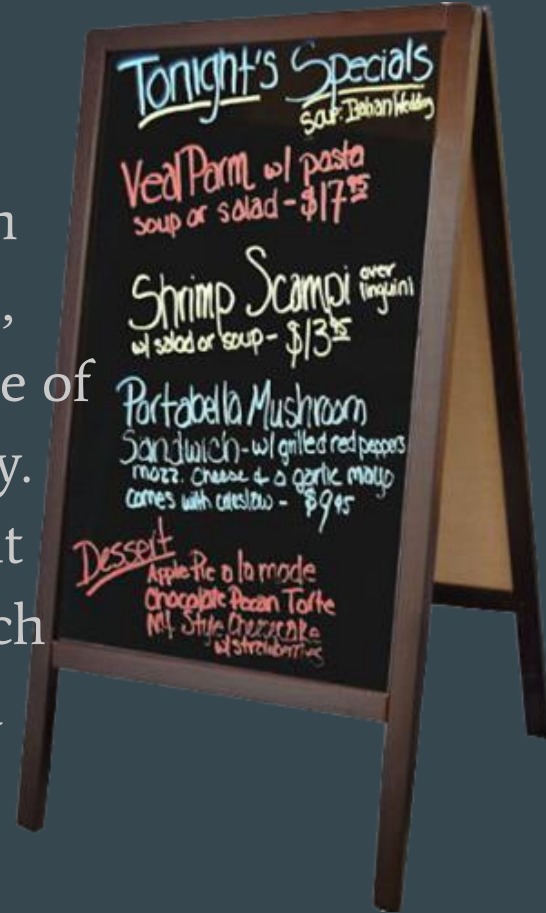 Tonight's Specials
Soup: Italian Wedding
Veal Parm w/ pasta
soup or salad - $17.95
Shrimp Scampi over linguini
w/ salad or soup - $13.95
Portabella Mushroom
Sandwich - w/ grilled red peppers
mozz. cheese & a garlic mayo
comes with coleslaw - $9.95
Dessert
Apple Pie a la mode
Chocolate Pecan Torte
N.Y. Style Cheesecake
w/ strawberries
e of
y.
ch